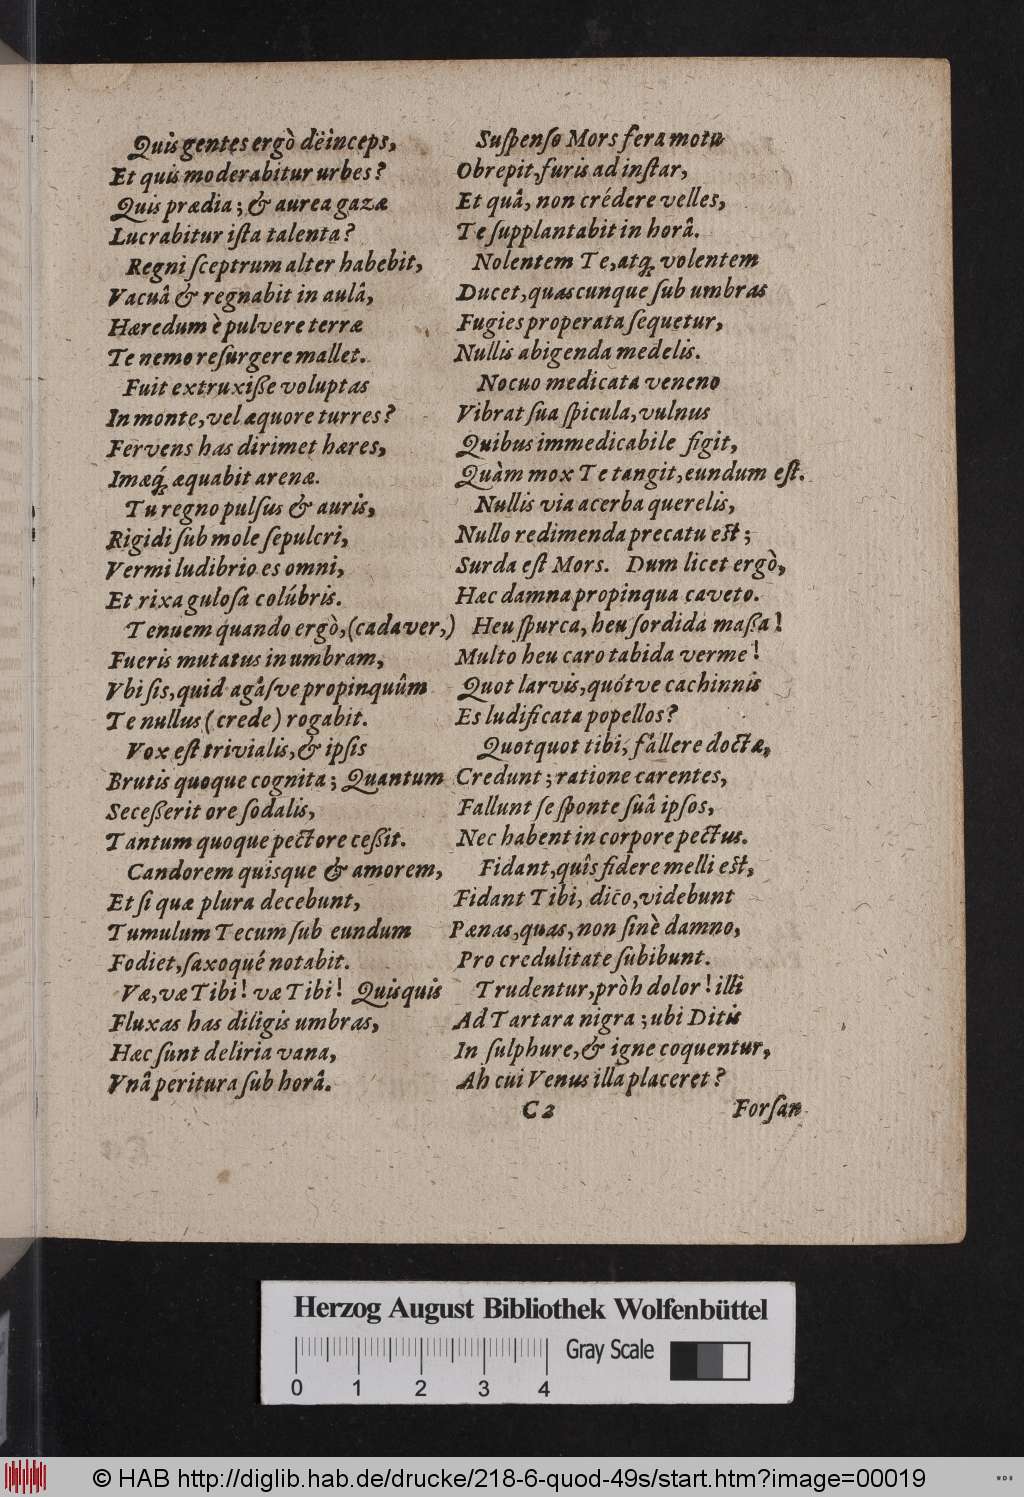 Quis gentes ergò dëinceps,
Et quis moderabitur urbes?
Quis prædia; & aurea gazæ
Lucrabitur iſta talenta?
Regni ſceptrum alter habebit,
Vacuâ & regnabit in aulâ,
Hæredum è pulvere terræ
Te nemo reſurgere mallet.
Fuit extruxiſſe voluptas
In monte, vel æquore turres?
Fervens has dirimet hæres,
Imæq́; æquabit arenæ.
Tu regno pulſus & auris,
Rigidi ſub mole ſepulcri,
Vermi ludibrio es omni,
Et rixa guloſa colúbris.
Tenuem quando ergò, (cadaver,)
Fueris mutatus in umbram,
Vbi ſis, quid agâſve propinquûm
Te nullus (crede) rogabit.
Vox eſt trivialis, & ipſis
Brutis quoque cognita; Quantum
Seceſſerit ore ſodalis,
Tantum quoque pectore ceſſit.
Candorem quisque & amorem,
Et ſi quæ plura decebunt,
Tumulum Tecum ſub eundum
Fodiet, ſaxoqué notabit.
Væ, væ Tibi! væ Tibi! Quisquis
Fluxas has diligis umbras,
Hæc ſunt deliria vana,
Vnâ peritura ſub horâ.
Suſpenſo Mors fera motu
Obrepit, furis ad inſtar,
Et quâ, non crédere velles,
Te ſupplantabit in horâ.
Nolentem Te, atq; volentem
Ducet, quascunque ſub umbras
Fugies properata ſequetur,
Nullis abigenda medelis.
Nocuo medicata veneno
Vibrat ſua ſpicula, vulnus
Quibus immedicabile figit,
Quàm mox Te tangit, eundum eſt.
Nullis via acerba querelis,
Nullo redimenda precatu eſt;
Surda eſt Mors. Dum licet ergò,
Hæc damna propinqua caveto.
Heu ſpurca, heu ſordida maſſa!
Multo heu caro tabida verme!
Quot larvis, quótve cachinnis
Es ludificata popellos?
Quotquot tibi, fallere doctæ,
Credunt; ratione carentes,
Fallunt ſe ſponte ſuâ ipſos,
Nec habent in corpore pectus.
Fidant, quîs fidere melli eſt,
Fidant Tibi, dico, videbunt
Pænas, quas, non ſinè damno,
Pro credulitate ſubibunt.
Trudentur, pròh dolor! illi
Ad Tartara nigra; ubi Ditis
In ſulphure, & igne coquentur,
Ah cui Venus illa placeret?
C 2
Forſan
Herzog August Bibliothek Wolfenbüttel
Gray Scale
0 1 2 3 4
© HAB http://diglib.hab.de/drucke/218-6-quod-49s/start.htm?image=00019